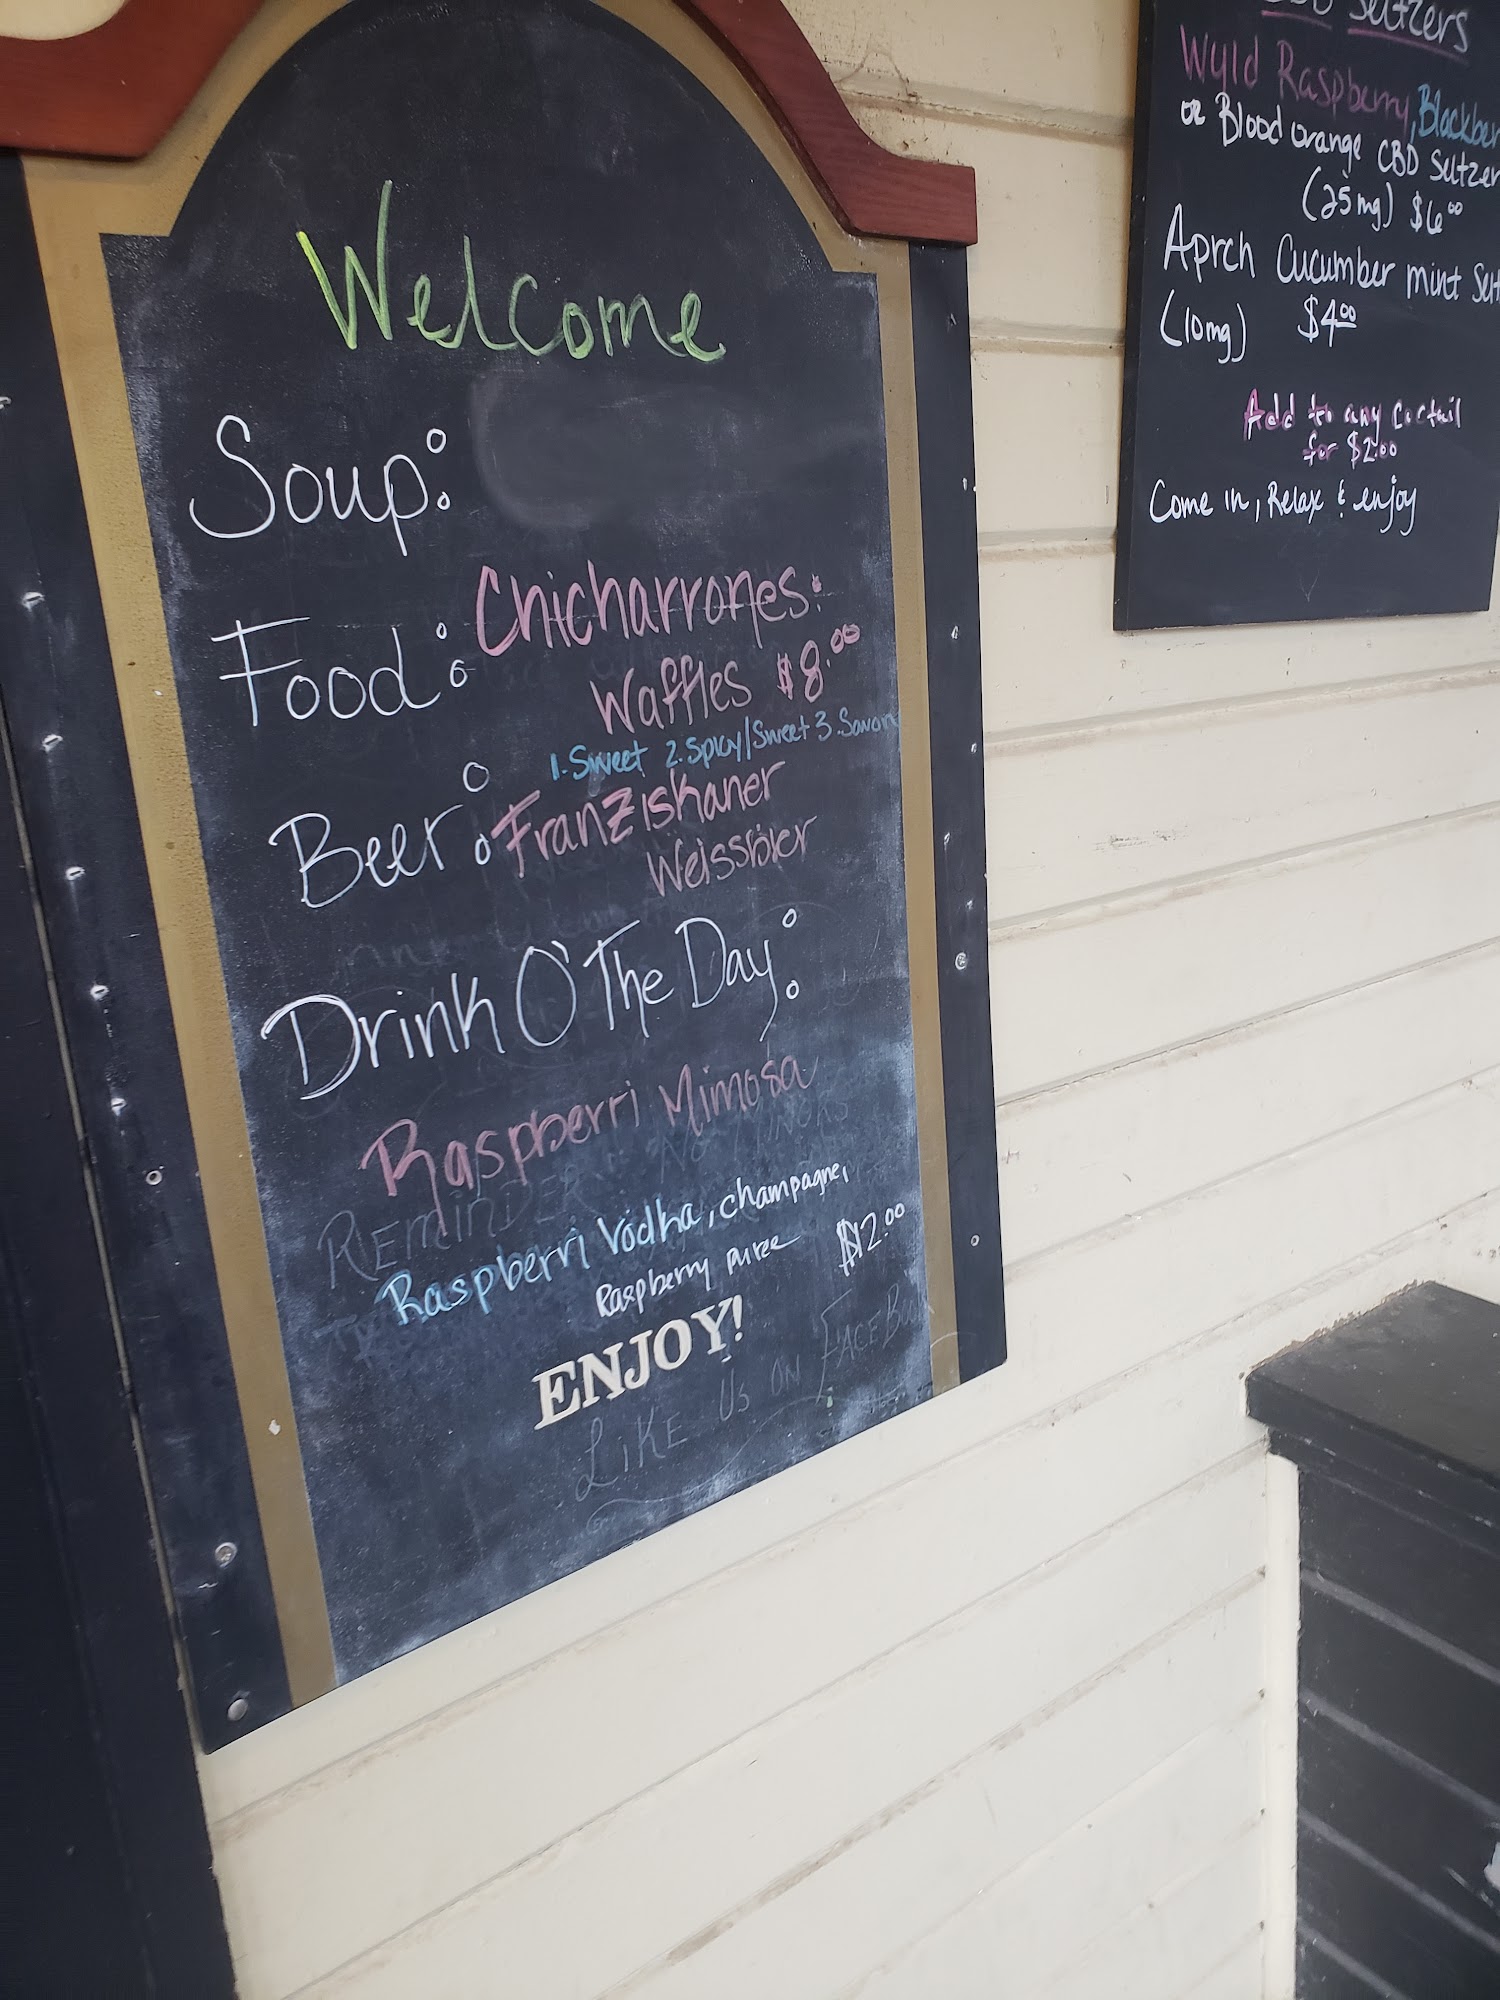 Welcome
Soup:
Food: Chicharrones:
Waffles $8.00
1.Sweet 2.Spicy/Sweet 3.Savory
Beer: Franziskaner
Weissbier
Drink O' The Day:
Raspberri Mimosa
REMINDER NO MINORS
Raspberri Vodka, champagne,
Raspberry puree $12.00
ENJOY!
LIKE US ON FACEBOOK
CBD Seltzers
Wyld Raspberry, Blackber
or Blood orange CBD Seltzer
(25mg) $6.00
Aprch Cucumber mint Selt
(10mg) $4.00
Add to any coctail
for $2.00
Come in, Relax & enjoy